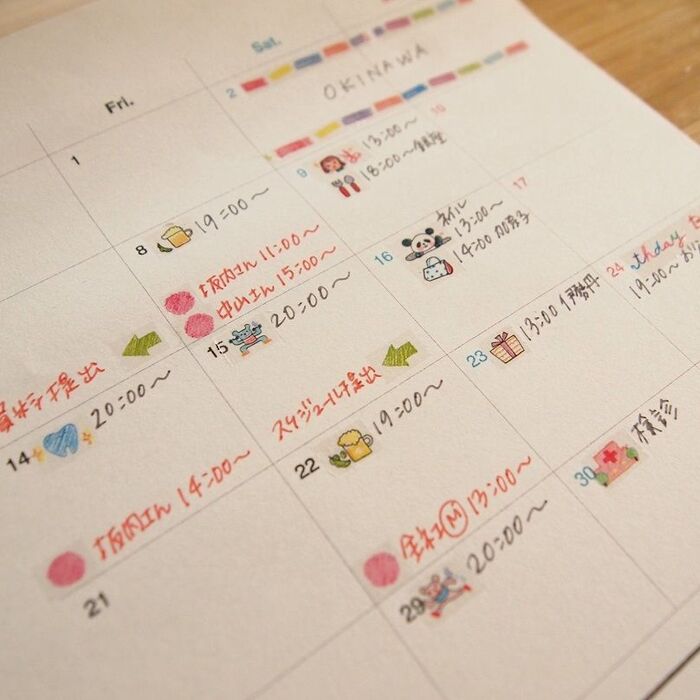 Fri.
Sat.
1
2
OKINAWA
8
19:00〜
坂内さん 11:00〜
中山さん 15:00〜
9
13:00〜
18:00〜銀座
10
14
20:00〜
坂内さん 14:00〜
15
20:00〜
スケジュール提出
16
ネイル
13:00〜
14:00
17
21
22
19:00〜
全社Ⓜ 13:00〜
23
13:00 伊勢丹
24
thday
19:00〜
29
20:00〜
30
検診